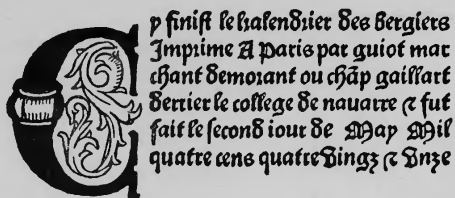 Cy finist le kalendrier des bergiers
Imprime A Paris par guiot mar
chant demorant ou chãp gaillart
derrier le college de nauarre ⁊ fut
fait le second iour de May Mil
quatre cens quatreVingz ⁊ Vnze